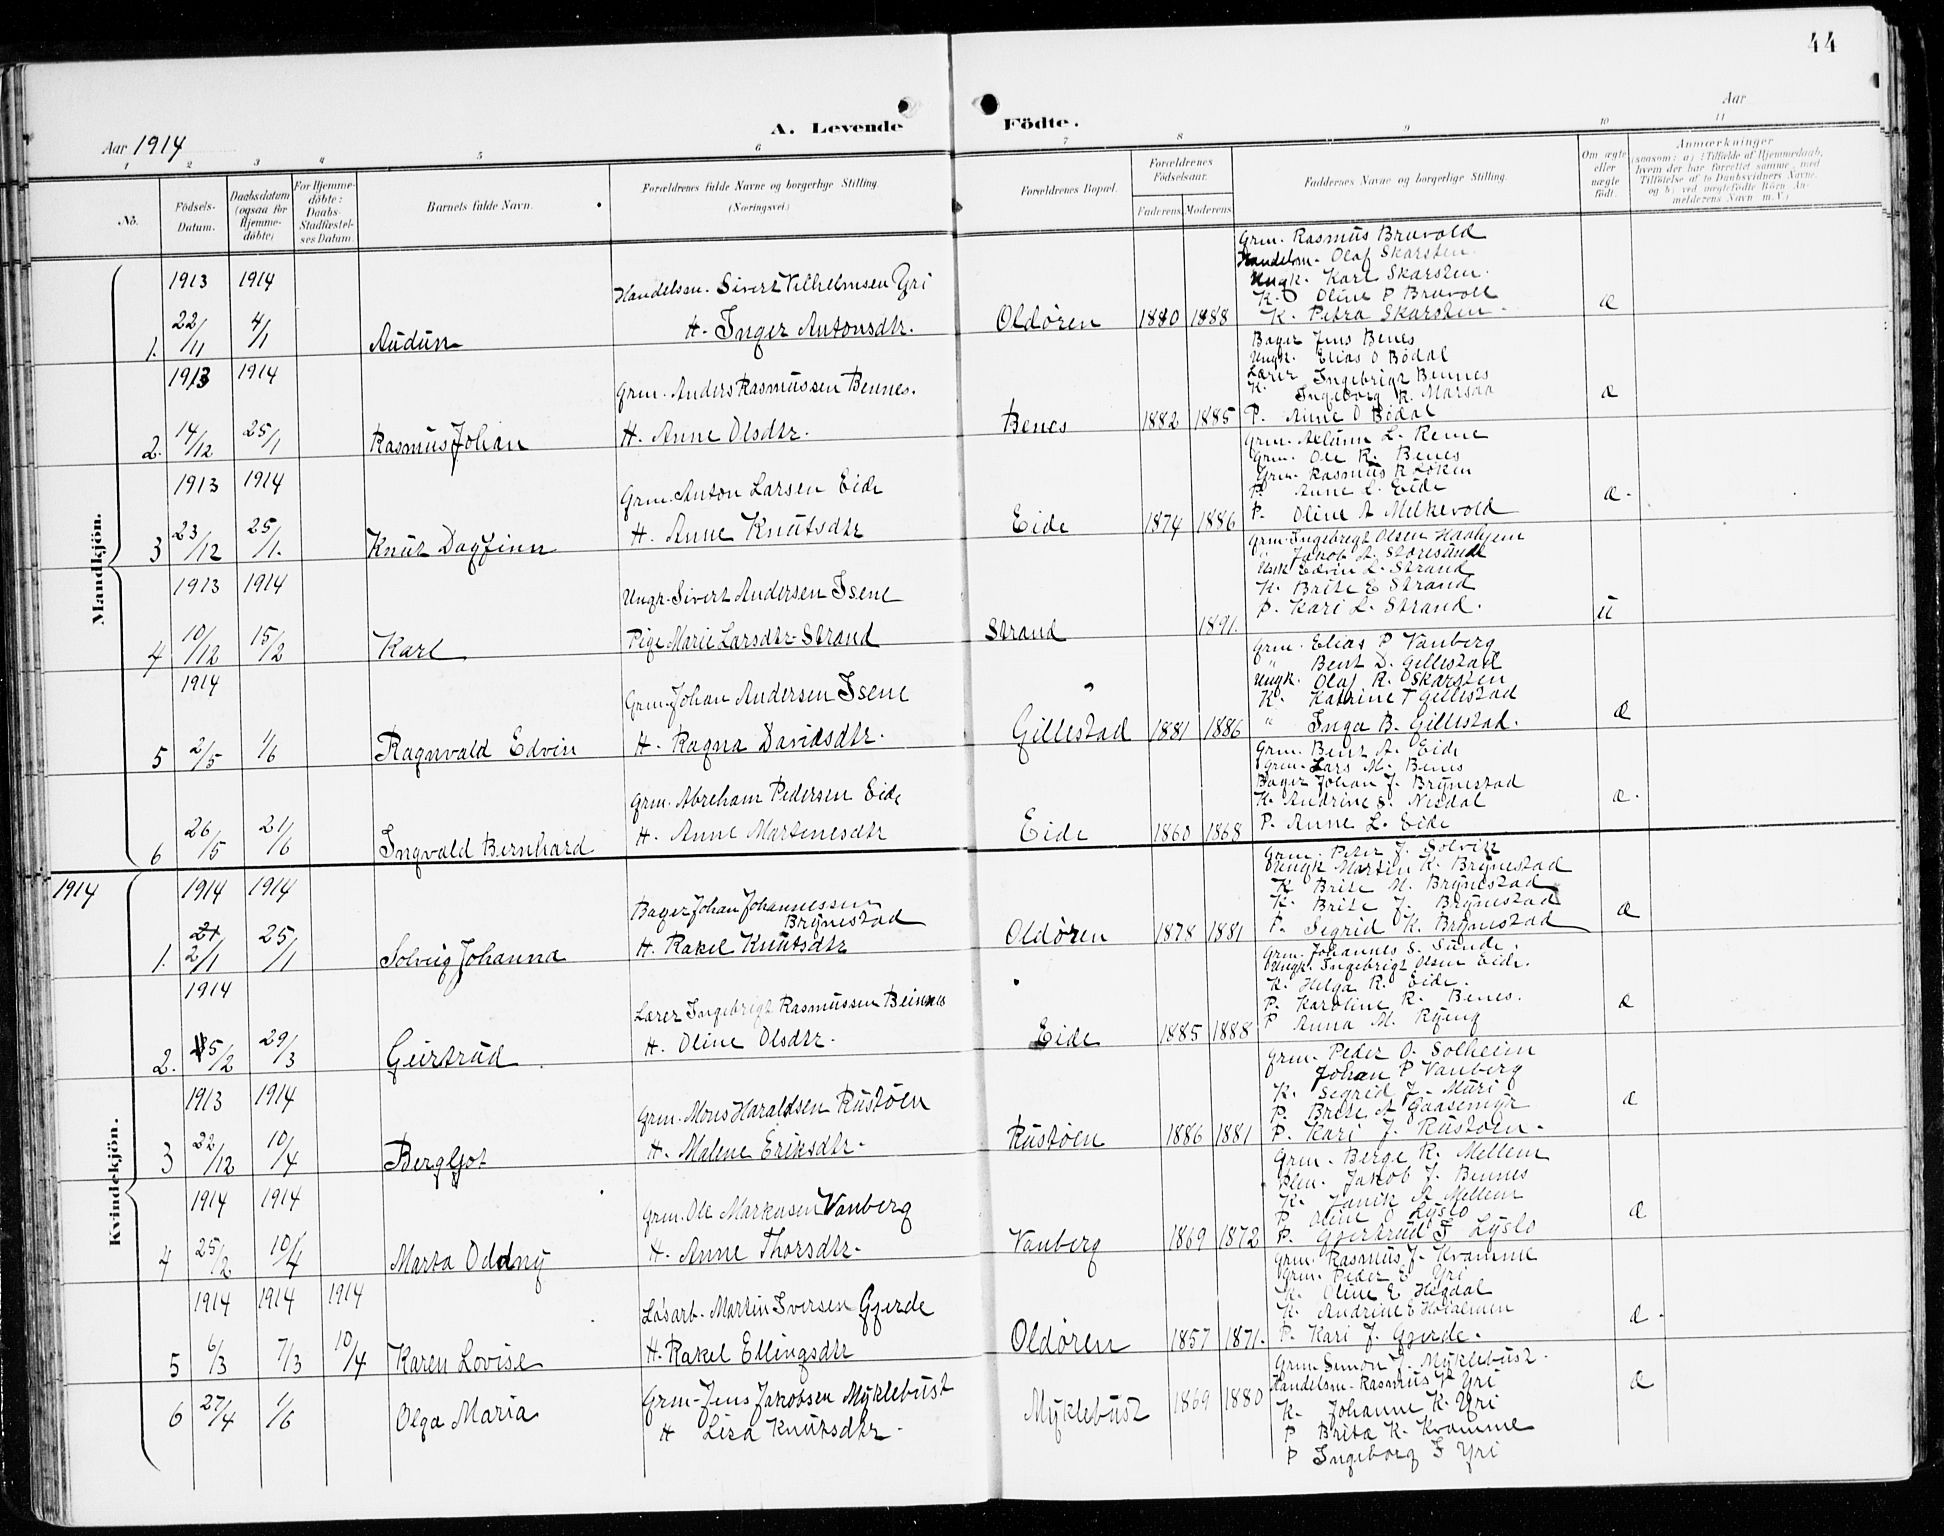 44
Aar 1914
A. Levende Födte.
Aar
1 2 3 4 5 6 7 8 9 10 11
No.
Födsels-Datum.
Daabsdatum (ogsaa for Hjemme-döbte)
For Hjemme-döbte: Daabs-Stadfæstel-ses Datum.
Barnets fulde Navn.
Forældrenes fulde Navne og borgerlige Stilling. (Næringsvei.)
Forældrenes Bopæl.
Forældrenes Födselsaar.
Faderens. Moderens.
Faddernes Navne og borgerlige Stilling.
Om ægte eller uægte födt.
Anmærkninger
(saasom: a) i Tilfælde af Hjemmedaab, hvem der har forrettet samme, med Tilföielse af to Daabsvidners Navne, og b) ved uægtefödte Börn, An-melderens Navn m. V.)
Mandkjön.
1. 1913 22/11 1914 4/1 Audun
Handelsm. Sivert Vilhelmsen Yri
H. Inger Antonsdtr.
Oldøren 1880 1888
Grm. Rasmus Bruvold
Handelsm. Olaf Skarsten
Ungk. Karl Skarsten.
K. Oline P Bruvoll
K. Petra Skarsten.
æ
2. 1913 14/12 1914 25/1 Rasmus Johan
Grm. Anders Rasmussen Bennes.
H. Anne Olsdtr.
Benes 1882 1885
Bager Jens Benes
Ungk. Elias O Bødal
Lærer Ingebrigt Bennes
K. Ingeborg R. Marsaa
P. Anne O Bødal
æ
3 1913 23/12 1914 25/1. Knut Dagfinn
Grm. Anton Larsen Eide
H. Anne Knutsdtr
Eide 1874 1886
Grm. L. Reme
Grm. Ole R. Benes
Grm. Rasmus R Løken
P. Anne L. Eide
P. Oline A Melkevold
æ.
4 1913 10/12 1914 15/2 Karl
Ungk. Sivert Andersen Isene
Pige Marie Larsdtr. Strand
Strand 1891.
Grm. Ingebregt Olsen Haahjem
" Jakob A. Storesunde
Ungk Edvin L. Strand
K. Brite E Strand
P. Kari L. Strand.
u
5 1914 2/5 1/6 Ragnvald Edvin
Grm. Johan Andersen Isene
H. Ragna Davidsdtr.
Gillestad 1881 1886
Grm. Elias P Vanberg
" Bent D. Gillestad
Ungk. Olaf R. Skarsten
K. Katrine T Gillestad
" Inga B. Gillestad.
æ
6 26/5 21/6 Ingvald Bernhard
Grm. Abreham Pedersen Eide
H. Anne Martinesdtr
Eide 1860 1868
Grm. Bent A. Eide
Grm. Lars M. Benes
Bager Johan J. Brynestad
K. Andrine S. Nesdal
P. Anne L. Eide
æ.
1914
Kvindekjön.
1. 1914 2/1 1914 25/1 Solveig Johanna
Bager Johan Johannessen Brynestad
H. Rakel Knutsdtr
Oldøren 1878 1881
Grm. Peter J. Solvik
Ungk Martin K. Brynestad
K. Brite M. Brynestad
K. Brite J. Brynestad
P. Segrid K. Brynestad
æ
2. 1914 5/2 29/3 Geirtrud
Lærer Ingebrigt Rasmussen Beinnes
H. Oline Olsdtr.
Eide 1885 1888
Grm. Johannes S. Sunde.
Ungk. Ingebrigt Olsen Eide.
K. Helga R. Eide.
P. Karoline R. Benes.
P Anna M. Ryeng
æ
3 1913 22/12 1914 10/4 Bergljot
Grm. Mons Haraldsen Rustøen
H. Malene Eriksdtr.
Rustøen 1886 1881
Grm. Peder O. Solheim
Johan P Vanberg
K. Segrid J. Muri
P. Brite A Gaasemyr
P. Kari J. Rustøen.
æ
4 1914 25/2 1914 10/4 Marta Oddny
Grm. Ole Markusen Vanberg
H. Anne Thorsdtr.
Vanberg 1869 1872
Grm. Børge R. Mellem
Elen. Jakob J. Bennes
K. Janik A Mellem
P Oline O Lyslo
P. Gjertrud F Lyslo
æ
5 1914 6/3 1914 7/3 1914 10/4 Karen Lovise
Løsarb. Martin Iversen Gjerde
H. Rakel Ellingsdtr
Oldøren 1857 1871.
Grm. Rasmus J. Kvamme
Grm. Peder E. Yri
K. Oline E Hegdal
K. Andrine E
P. Kari J. Gjerde.
æ.
6 27/4 1/6 Olga Maria
Grm. Jens Jakobsen Myklebust
H Lisa Knutsdtr.
Myklebust 1869 1880
Grm Simon J. Myklebust.
Handelsm. Rasmus V Yri
K. Johanne K. Yri
P Brita K. Kvamme
P Ingeborg I Yri
æ